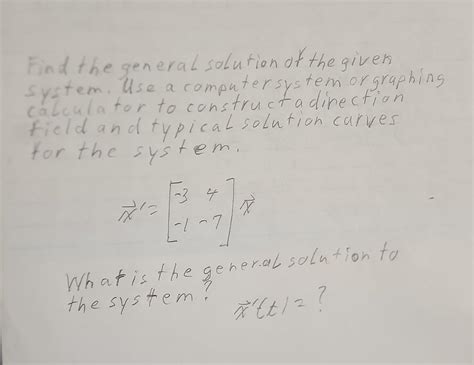 Find the general solution of the given
system. Use a computer system or graphing
calculator to construct a direction
field and typical solution curves
for the system.
x⃗' = [-3 4
-1 -7] x⃗
What is the general solution to
the system?
x⃗'(t) = ?